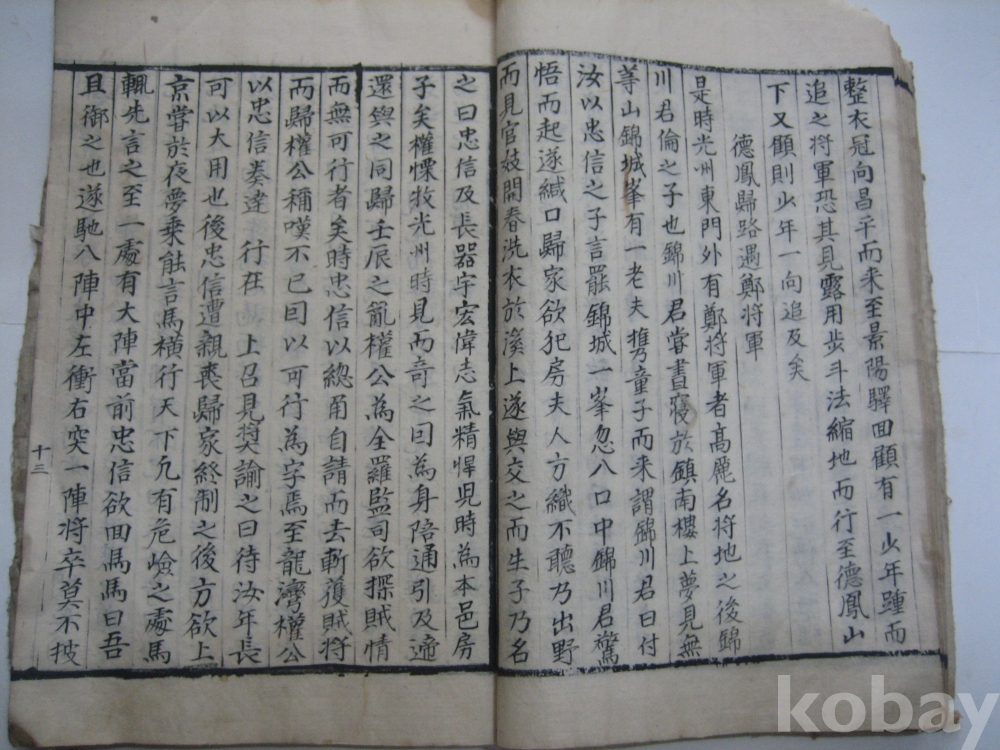 整衣冠向昌平而来至景陽驛回顧有一少年踵而
追之将軍恐其見露用步斗法縮地而行至德鳳山
下又顧則少年一向追及矣
德鳳歸路遇鄭將軍
是時光州東門外有鄭将軍者高麗名将地之後錦
川君倫之子也錦川君嘗晝寝於鎮南樓上夢見無
等山錦城峯有一老夫携童子而来謂錦川君曰付
汝以忠信之子言罷錦城一峯忽入口中錦川君驚
悟而起遂緘口歸家欲犯房夫人方織不聽乃出野
而見官妓開春洗衣於溪上遂與交之而生子乃名
之曰忠信及長器宇宏偉志氣精悍児時為本邑房
子矣權慄牧光州時見而奇之曰為身陪通引及遆
還與之同歸壬辰之亂權公為全羅監司欲探賊情
而無可行者矣時忠信以總角自請而去斬馘賊将
而歸權公稱嘆不已曰以可行為字焉至龍灣權公
以忠信奏達 行在 上召見奬諭之曰待汝年長
可以大用也後忠信遭親喪歸家終制之後方欲上
京嘗於夜夢乗能言馬横行天下凢有危嶮之處馬
輒先言之至一處有大陣當前忠信欲回馬馬曰吾
且御之也遂馳入陣中左衝右突一陣将卒莫不披
十三
kobay